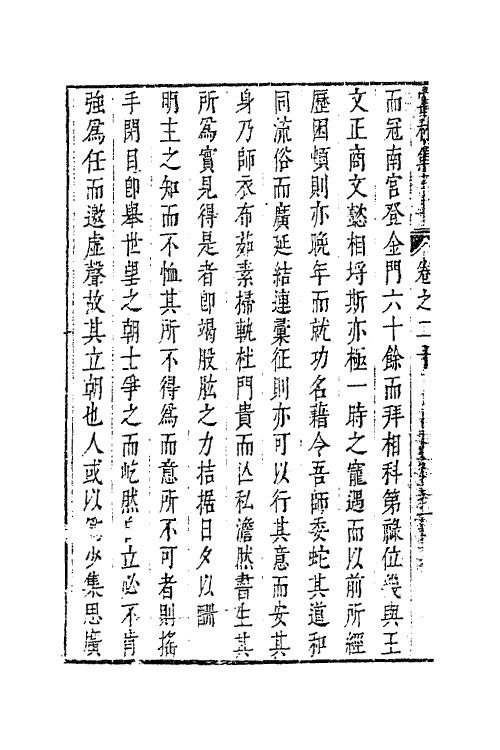 卷之二十
而冠南宮登金門六十餘而拜相科第祿位幾與王
文正商文懿相埒斯亦極一時之寵遇而以前所經
歷困頓則亦晚年而就功名藉令吾師委蛇其道和
同流俗而廣延結連彙征則亦可以行其意而安其
身乃師衣布茹素掃軌杜門貴而亾私澹然書生其
所爲實見得是者卽竭股肱之力拮据日夕以酬
明主之知而不恤其所不得爲而意所不可者則搖
手閉目卽舉世望之朝士爭之而屹然自立必不肯
強爲任而邀虛聲故其立朝也人或以爲少集思廣